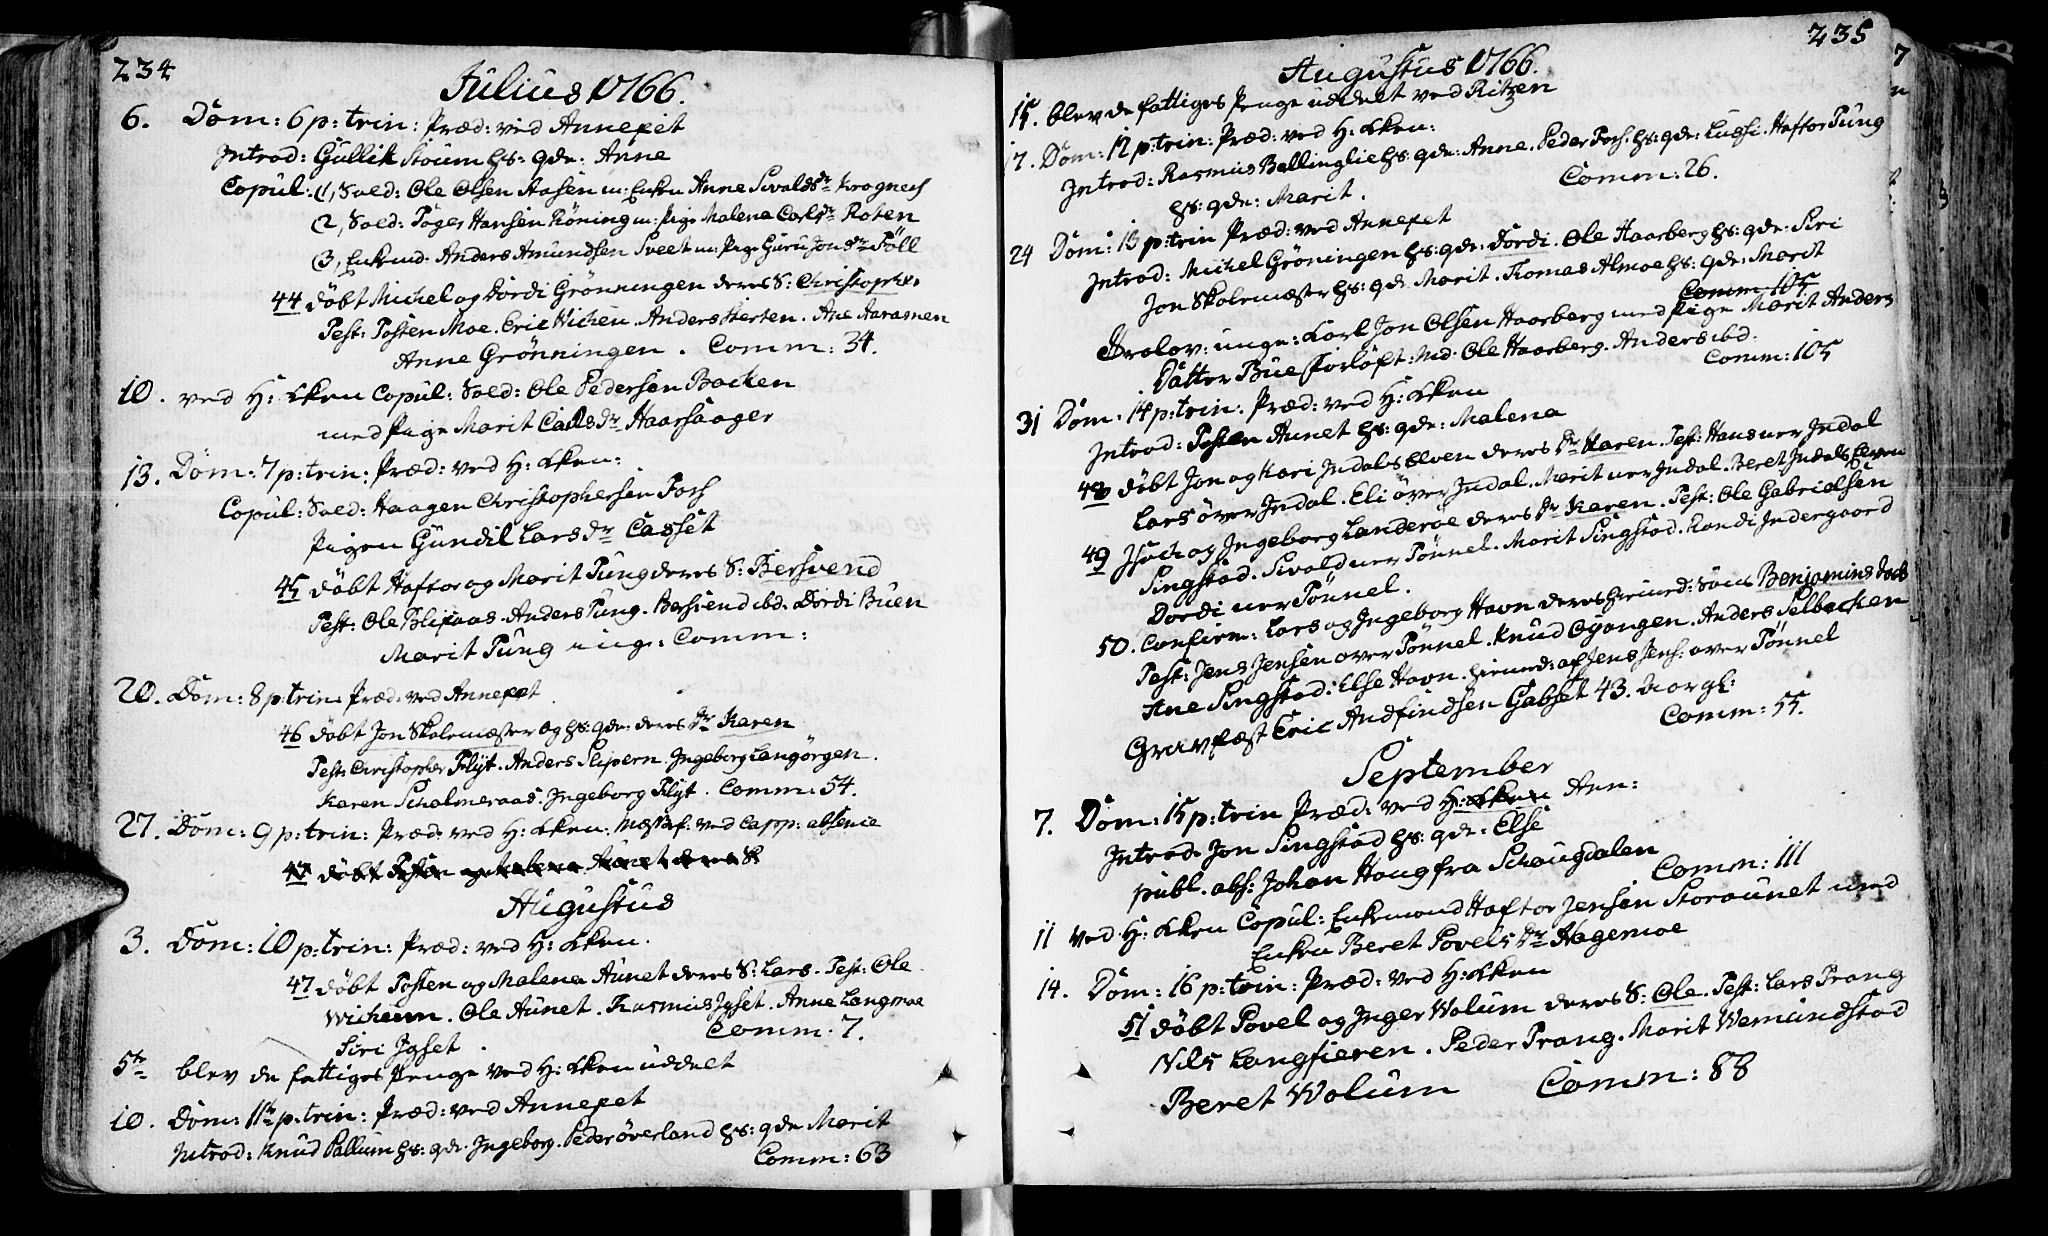 234
Julius 1766.
6. Dom: 6 p: trin: Præd: ved Annexet
Introd: Gullik Stoum hs: qde: Anne
Copul: (1, Sold: Ole Olsen Aasen m: Enken Anne Sivaldsdr Krognes
(2, Sold: Töger Hansen Röning m: Pige Malena Carlsdr Roten
(3, Enkemd: Anders Amundsen Sveet m: Pige Guru Jonsdr Föll
44 döbt Michel og Dordi Grönningen deres S: Christopher
Test: Tosten Moe. Eric Viken. Anders Hierten. Ane Aaramen
Anne Grönningen. Comm: 34.
10. ved H: Lken Copul: Sold: Ole Pedersen Backen
med Pige Marit Carlsdr Haarsager
13. Dom: 7 p: trin: Præd: ved H: Lken:
Copul: Sold: Haagen Christophersen Fors
Pigen Gundil Larsdr Casset
45 döbt Haftor og Marit Tung deres S: Bersvend
Test: Ole Blixaas. Anders Tung. Bersvend ibd. Dordi Buen
Marit Tung unge: Comm:
20. Dom: 8 p: trin: Præd: ved Annexet
46 döbt Jon Skolemæster og hs: qde: deres Dr Karen
Test: Christopher Flyt. Anders Slipern. Ingeborg Langörgen.
Karen Scholmeraas. Ingeborg Flyt. Comm: 54.
27. Dom: 9 p: trin: Præd: ved H: Lken. Messef: ved Capp: absence
47 döbt Tosten og Malena Aunet deres S
Augustus
3. Dom: 10 p: trin: Præd: ved H: Lken.
47 döbt Tosten og Malena Aunet deres S: Lars. Test: Ole
Wickeun. Ole Aunet. Rasmus Jgset. Anne Langmoe
Siri Jgset. Comm: 7.
5te blev de fattiges Penge ved H: Lken uddelt
10. Dom: 11te p: trin: Præd: ved Annexet
Introd: Knud Pallum hs: qde: Ingeborg. Peder överland hs: qde Marit
Comm: 63
235
Augustus 1766.
15. blev de fattiges Penge uddelt ved Ritzen
17. Dom: 12 p: trin: Præd: ved H: Lken:
Introd: Rasmus Ballinglie hs: qde: Anne. Peder Fors. hs: qde: Lussi. Haftor Tung
hs: qde: Marit. Comm: 26.
24 Dom: 13 p: trin Præd: ved Annexet
Introd: Michel Gröningen hs: qde: Dordi. Ole Haarberg hs: qde: Siri
Jon Skolemæster hs: qde Marit. Thomas Almoe hs: qde: Marit
Comm 105
Trolov: unge: Karl Jon Olsen Haarberg med Pige Marit Anders
Datter Bue Forlöft: Md. Ole Haarberg. Anders ibd.
Comm: 105
31 Dom: 14 p: trin: Præd: ved H: Lken
Introd: Tosten Aunet hs: qde: Malena
48 döbt Jon og Kari Jndals Elven deres Dr Karen. Test: Hans ner Jndal
Lars över Jndal. Eli över Jndal. Marit ner Jndal. Beret Jndals Elven
49 Jsach og Ingeborg Landeröe deres Dr Karen. Test: Ole Gabrielsen
Singstad. Sivald ner Tönnel. Marit Singstad. Randi Indergaard
Dordi ner Tönnel.
50. Confirm: Lars og Ingeborg Havn deres hiemed: Söns Benjamins Daab
Test: Jens Jensen over Tönnel. Knud Oyangen. Anders Selbacken
Ane Singstad. Else Havn. hiemed: af Jens Jens: over Tönnel
Gravfæst Eric Andfindsen Gabset 43. Aar gl:
Comm: 55.
September
7. Dom: 15 p: trin Præd: ved H: Lken Ann:
Introd: Jon Singstad hs: qde: Else
publ. abs: Johan Haug fra Schaugdalen
Comm: 111
11 ved H: Lken Copul: Enkemand Haftor Jensen Storaunet med
Enken Beret Povelsdr Hagemoe
14. Dom: 16 p: trin: Præd: ved H: Lken
51 döbt Povel og Inger Wolum deres S: Ole. Test: Lars Trang
Nils Langfieren. Peder Trang. Marit Wemundstad
Beret Wolum Comm: 88